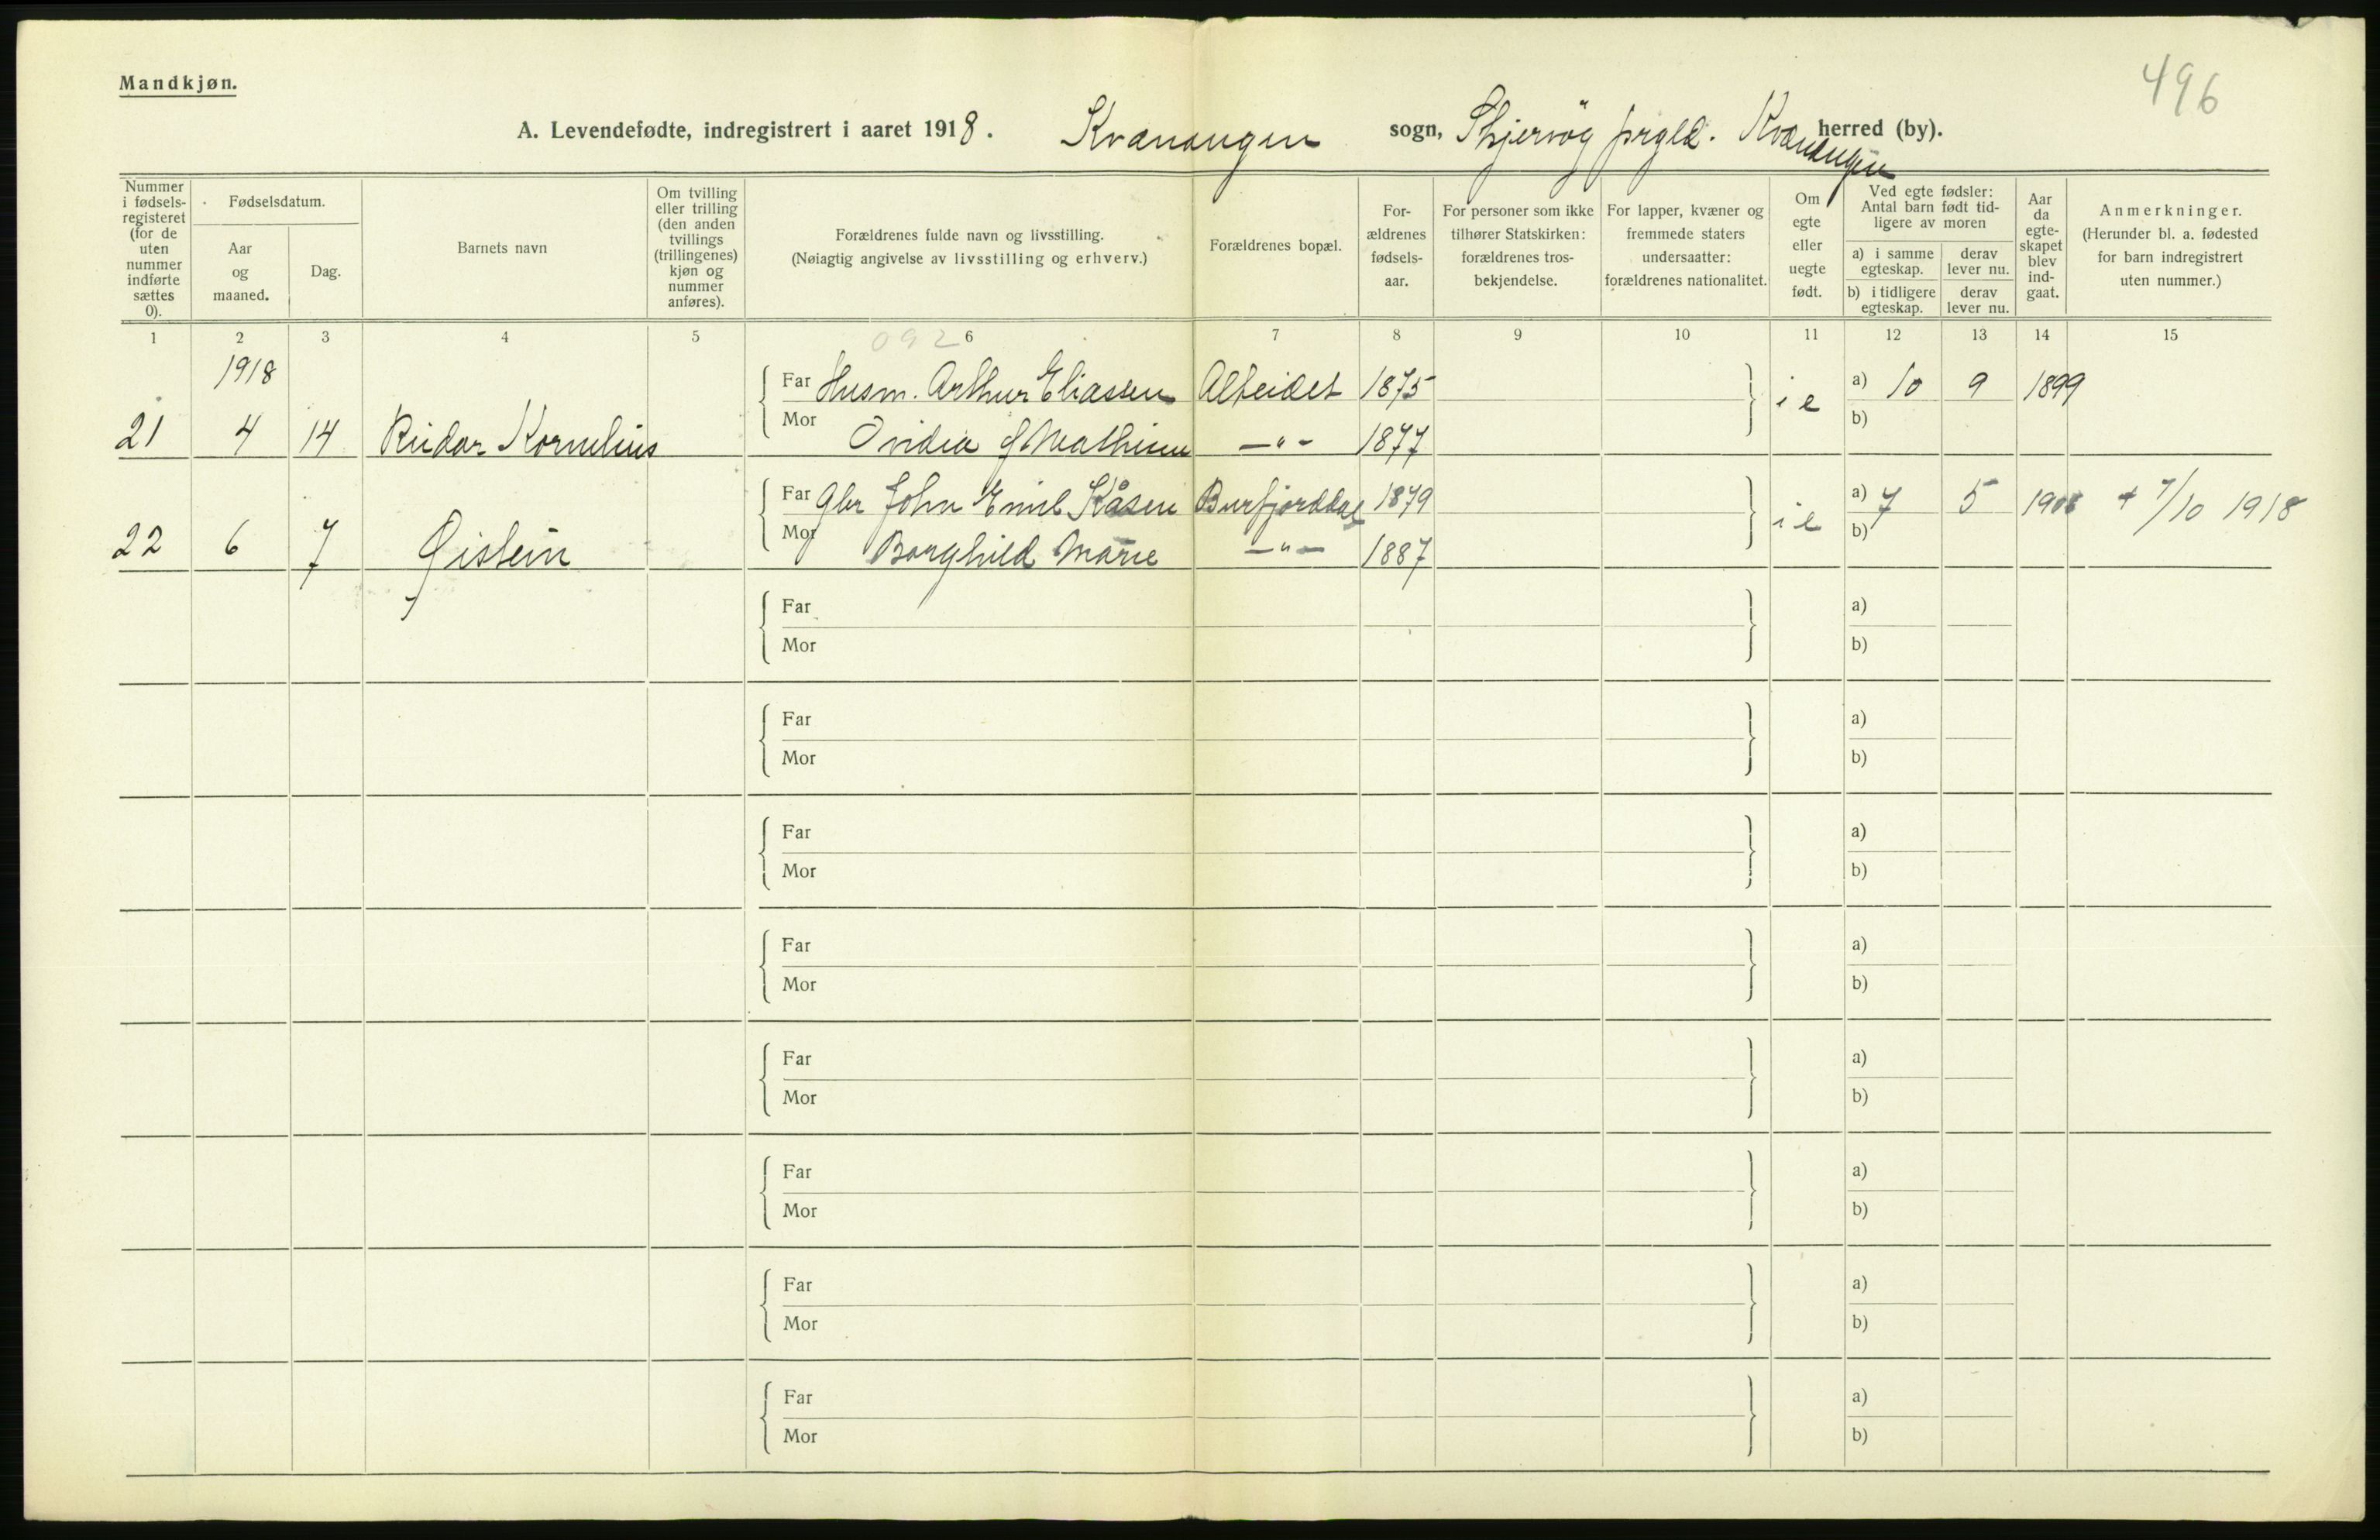 496
Mandkjøn.
A. Levendefødte, indregistrert i aaret 1918. Kvænangen sogn, Skjervøy prgld. Kvænangen herred (by).
Nummer i fødsels-registeret (for de uten nummer indførte sættes 0).
Fødselsdatum.
Aar og maaned.
Dag.
Barnets navn
Om tvilling eller trilling (den anden tvillings (trillingenes) kjøn og nummer anføres).
Forældrenes fulde navn og livsstilling.
(Nøiagtig angivelse av livsstilling og erhverv.)
Forældrenes bopæl.
For-ældrenes fødsels-aar.
For personer som ikke tilhører Statskirken: forældrenes tros-bekjendelse.
For lapper, kvæner og fremmede staters undersaatter: forældrenes nationalitet.
Om egte eller uegte født.
Ved egte fødsler: Antal barn født tid-ligere av moren
a) i samme egteskap.
derav lever nu.
b) i tidligere egteskap.
derav lever nu.
Aar da egte-skapet blev ind-gaat.
Anmerkninger.
(Herunder bl. a. fødested for barn indregistrert uten nummer.)
1 2 3 4 5 092 6 7 8 9 10 11 12 13 14 15
1918
Far Husm. Arthur Eliassen Alteidet 1875 i e a) 10 9 1899
21 4 14 Reidar Kornelius Mor Ovidia f Mathisen —"— 1877 b)
Far Gbr John Emil Kåsen Burfjorddal 1879 i e a) 7 5 1908 + 7/10 1918
22 6 7 Øistein Mor Borghild Marie —"— 1887 b)
Far a)
Mor b)
Far a)
Mor b)
Far a)
Mor b)
Far a)
Mor b)
Far a)
Mor b)
Far a)
Mor b)
Far a)
Mor b)
Far a)
Mor b)